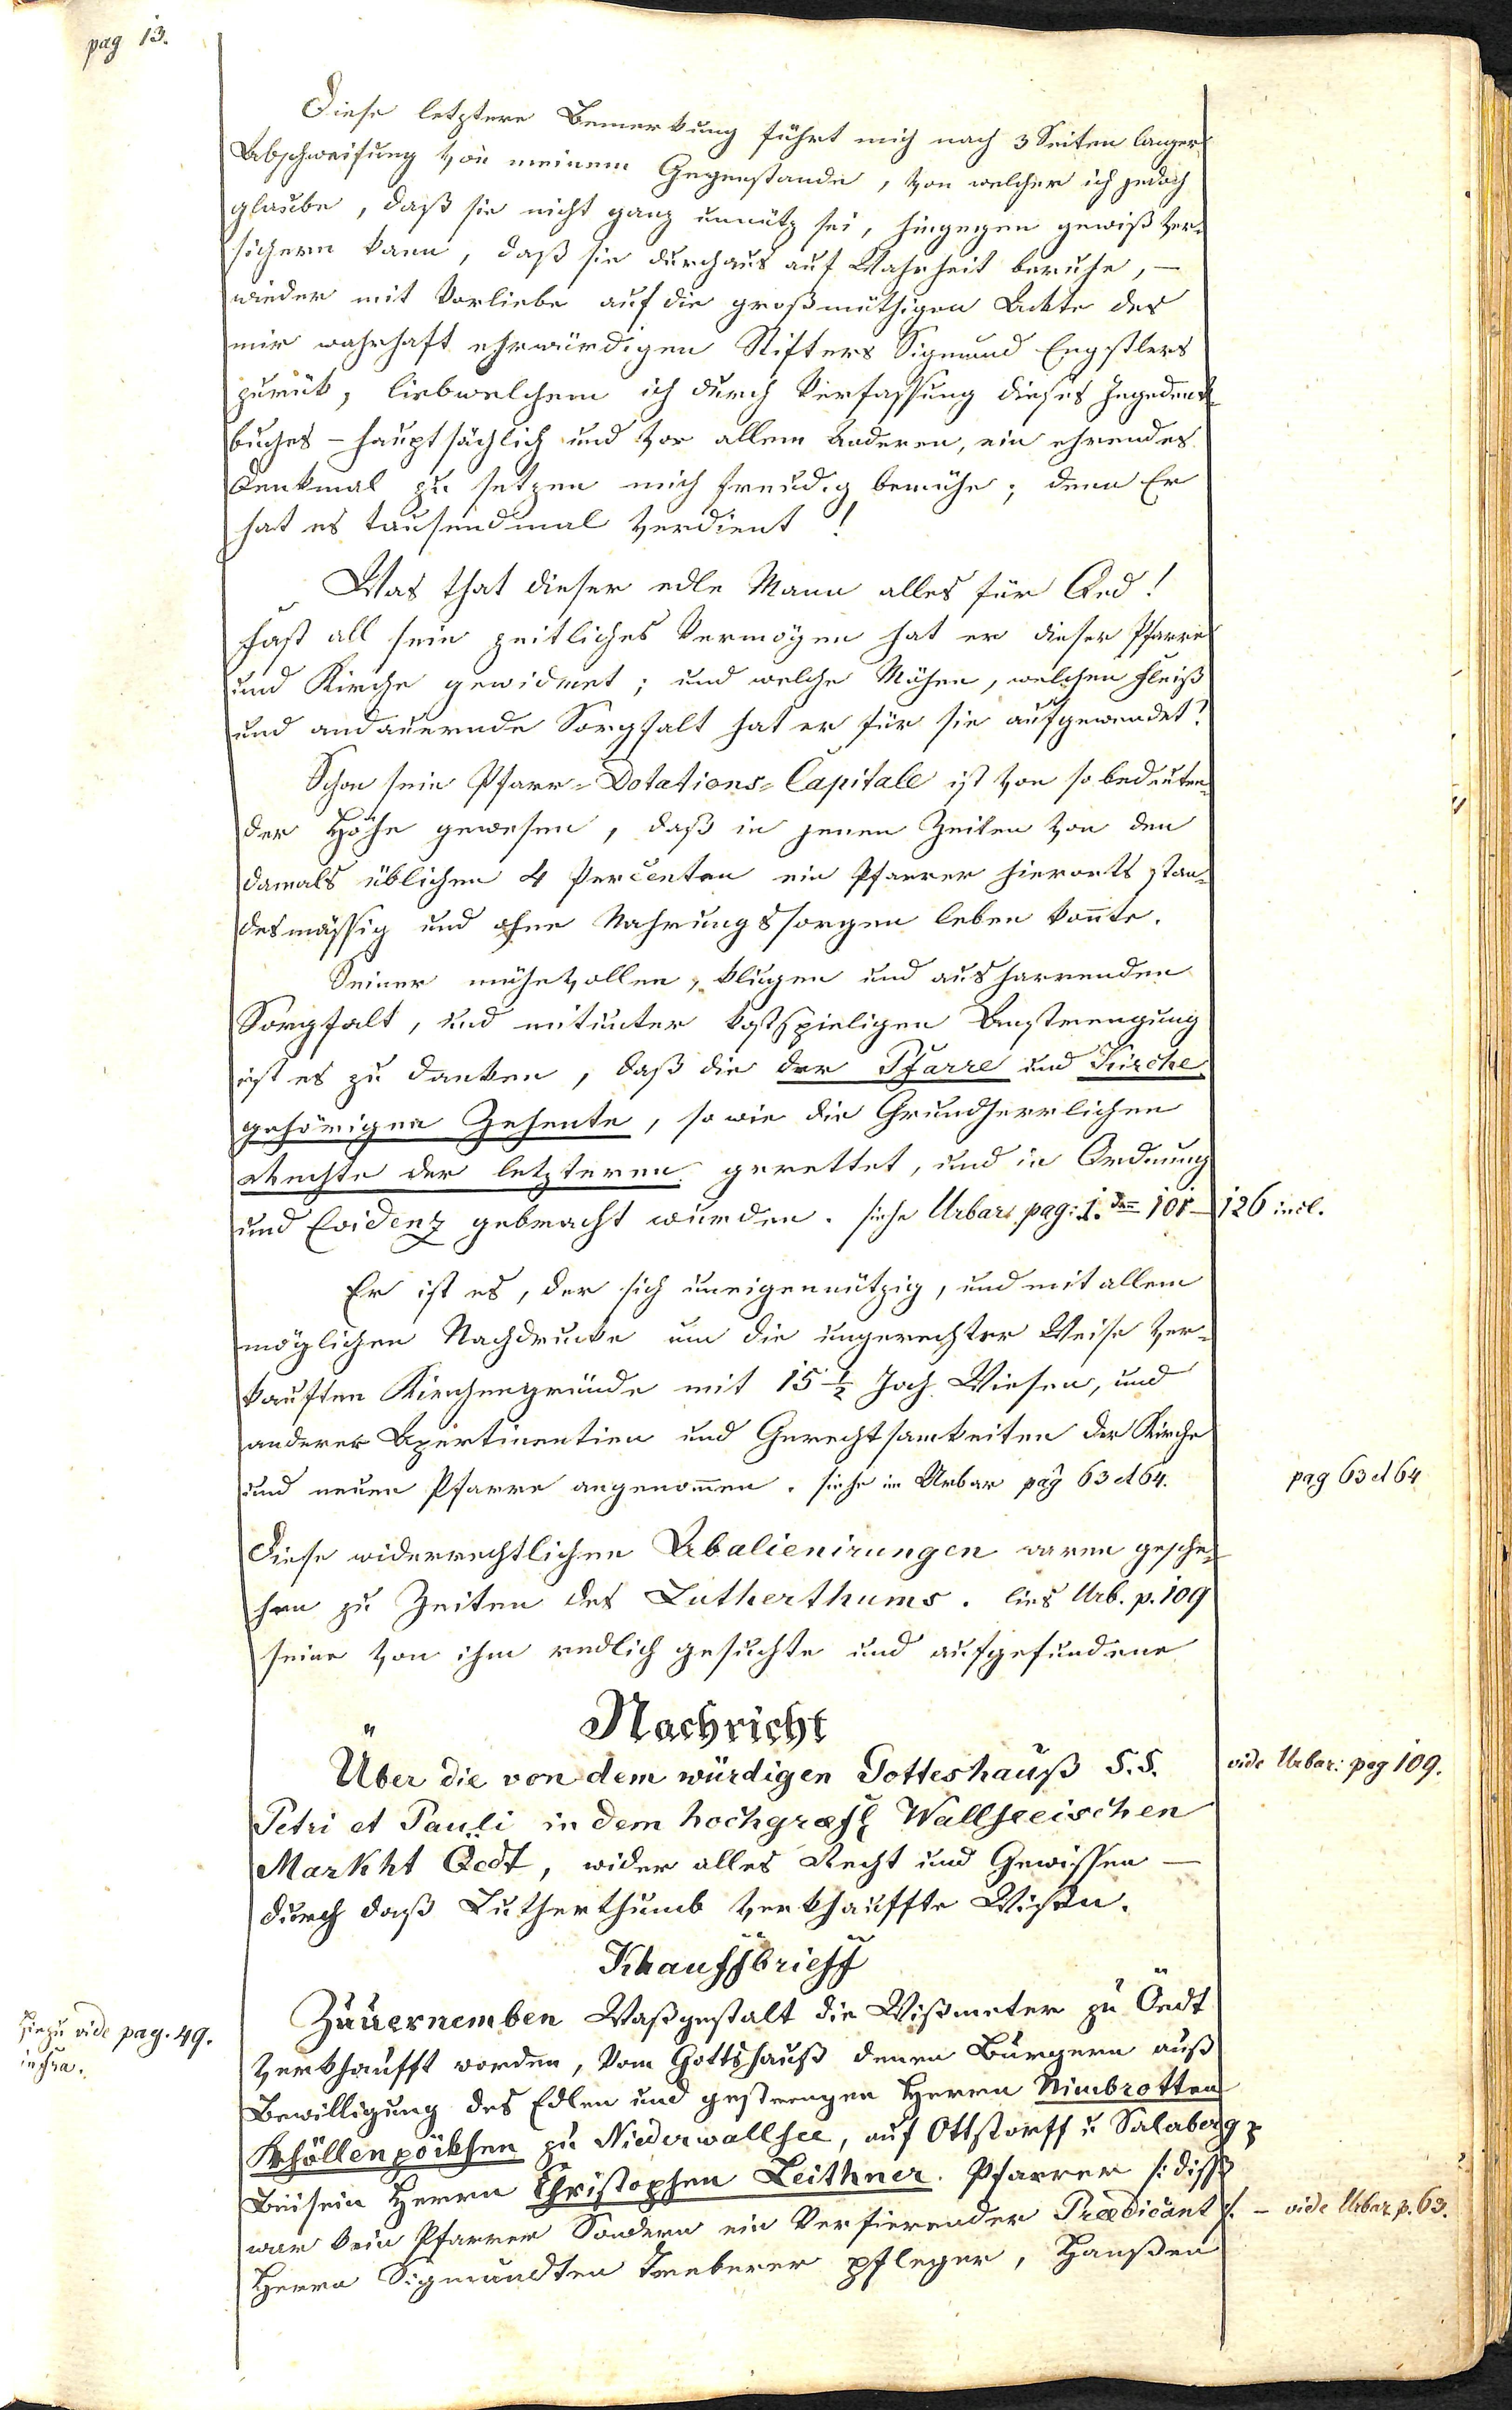 pag 13.
Diese letztere Bemerkung führt mich nach 3 Seiten langer
Abschweifung von meinem Gegenstande, von welcher ich jedoch
glaube, daß sie nicht ganz unnütz sei, hingegen gewiß ver-
sichern kann, daß sie durchaus auf Wahrheit beruhe, –
wieder mit Vorliebe auf die großmüthigen Ackte des
mir wahrhaft ehrwürdigen Stifters Sigmund Engstlers
zurük, liebwelchem ich durch Verfassung dieses Ingedenk-
buches – hauptsächlich und vor allem Anderen, ein ehrendes
Denkmal zu setzen mich freudig bemühe; denn Er
hat es tausendmal verdient!
Was that dieser edle Mann alles für Oed!
Fast all sein zeitliches Vermögen hat er dieser Pfarre
und Kirche gewidmet; und welche Mühen, welchen Fleiß
und andauernde Sorgfalt hat er für sie aufgewendet?
Schon sein Pfarr-Dotations-Capitale ist von so bedeuten-
der Höhe gewesen, daß in jenen Zeiten von den
damals üblichen 4 Percenten ein Pfarrer hierorts stan-
desmässig und ohne Nahrungssorgen leben konnte.
Seiner mühevollen, klugen und ausharrenden
Sorgfalt, und mitunter kostspieligen Anstrengung
ist es zu danken, daß die der Pfarre und Kirche
gehörigen Zehente, so wie die Grundherrlichen
Rechte der letzteren gerettet, und in Ordnung
und Evidenz gebracht wurden. siehe Urbar pag: 1. den 101 – 126 incl.
Er ist es, der sich uneigennützig, und mit allem
möglichen Nachdrucke um die ungerechter Weise ver-
kauften Kirchengründe mit 15 ½ Joch Wiesen, und
anderer Apertinentien und Gerechtsamkeiten der Kirche
und neuen Pfarre angenommen. siehe im Urbar pag 63 et 64.
pag 63 et 64
Diese widerrechtlichen Abalienirungen waren gesche-
hen zu Zeiten des Lutherthums. lies Urb. p. 109
seine von ihm redlich gesuchte und aufgefundene
Nachricht
Über die von dem würdigen Gotteshauß S.S.
vide Urbar: pag 109.
Petri et Pauli in dem hochgræfl Wallseeischen
Markht Oedt, wider alles Recht und Gewissen –
durch daß Lutherthumb verkhauffte Wisen.
Khauffbrieff
Zuuernemben Waßgestalt die Wißmeter zu Öedt
hiezu vide pag. 49.
infra.
verkhaufft worden, Vom Gottshauß denen Bürgern auß
Bewilligung des Edlen und gestrengen Herrn Nimbrotten
Khöllenpöckhen zu Niederwallsee, auf Ottstorff u Salaberg
Beisein Herrn Christophen Leithner. Pfarrer /: diss
war kein Pfarrer Sondern ein Versierender Prædicant :/. – vide Urbar p. 63.
Herrn Sigmundten Treberer pfleger, Hanßen